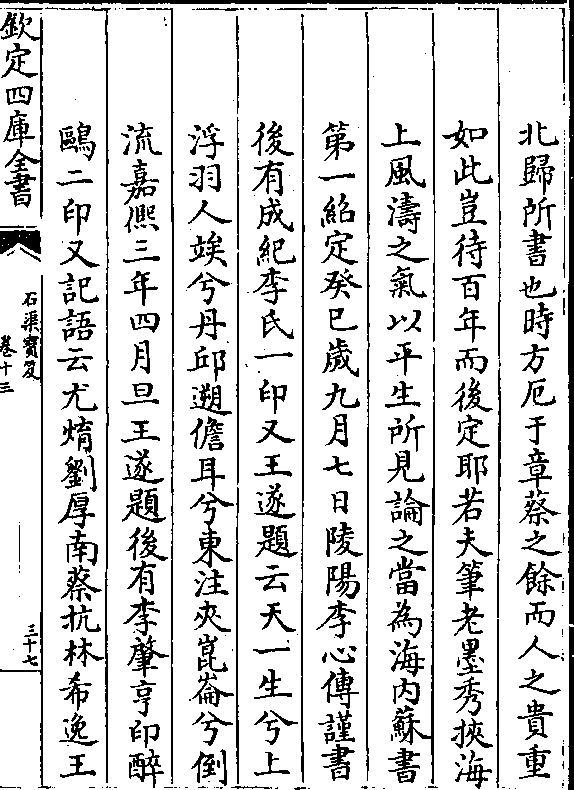 北歸所書也時方厄于章蔡之餘而人之貴重
如此豈待百年而後定耶若夫筆老墨秀挾海
上風濤之氣以平生所見論之當為海内蘇書
第一紹定癸巳歲九月七日陵陽李心傳謹書
後有成紀李氏一印又王遂題云天一生兮上
浮羽人竢兮丹邱遡儋耳兮東注夾崑崙兮倒
流嘉熈三年四月旦王遂題後有李肇亨印醉
鷗二印又記語云尤焴劉厚南蔡抗林希逸王
欽定四庫全書
石渠寳笈
卷十三
三十七